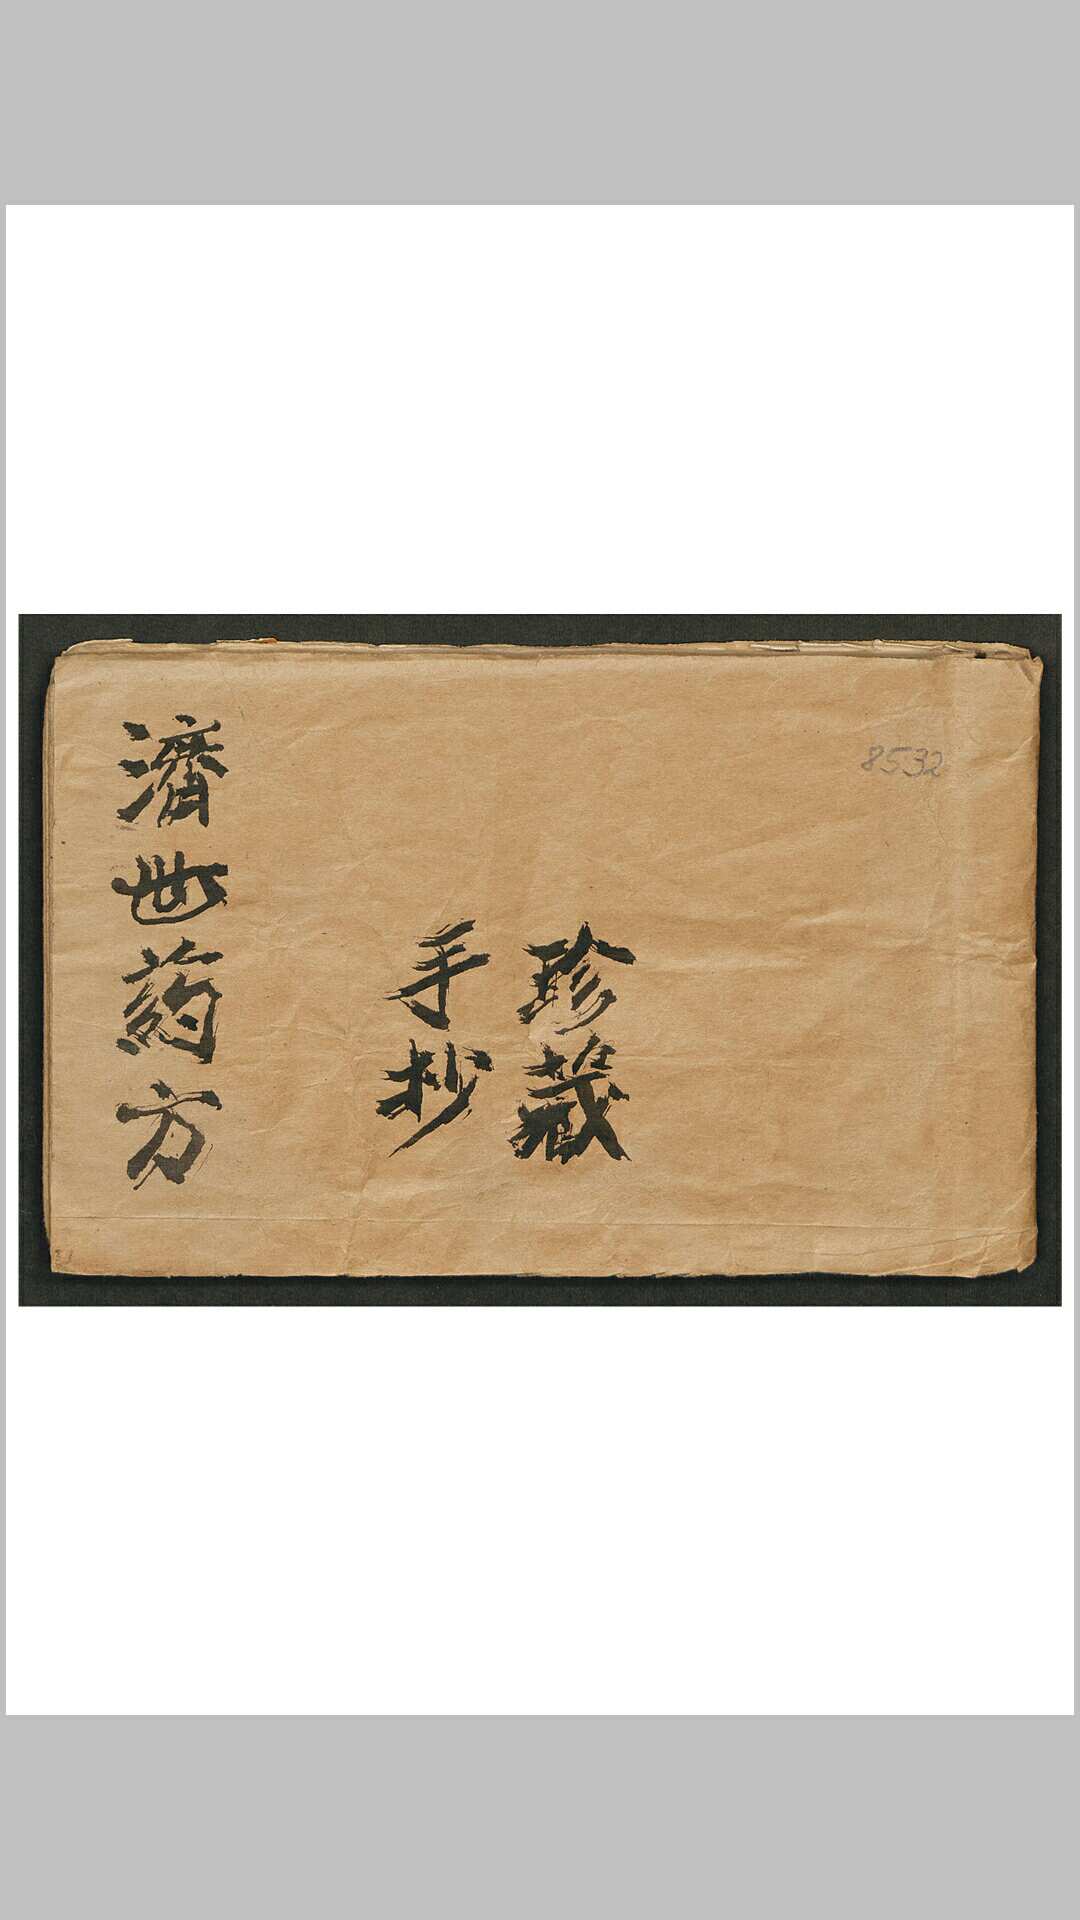 珍藏
手抄
濟世药方
8532